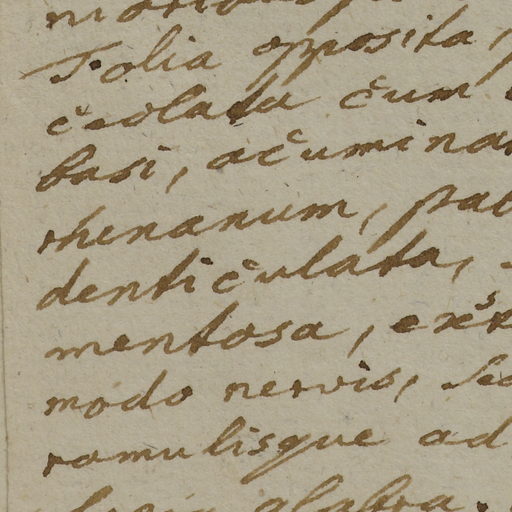 Folia opposita,
ceolata cum
basi, acumina
rhenanum, pat
denticulata,
mentosa, exs
modo nervis, sed
ramulisque ad
glabra.